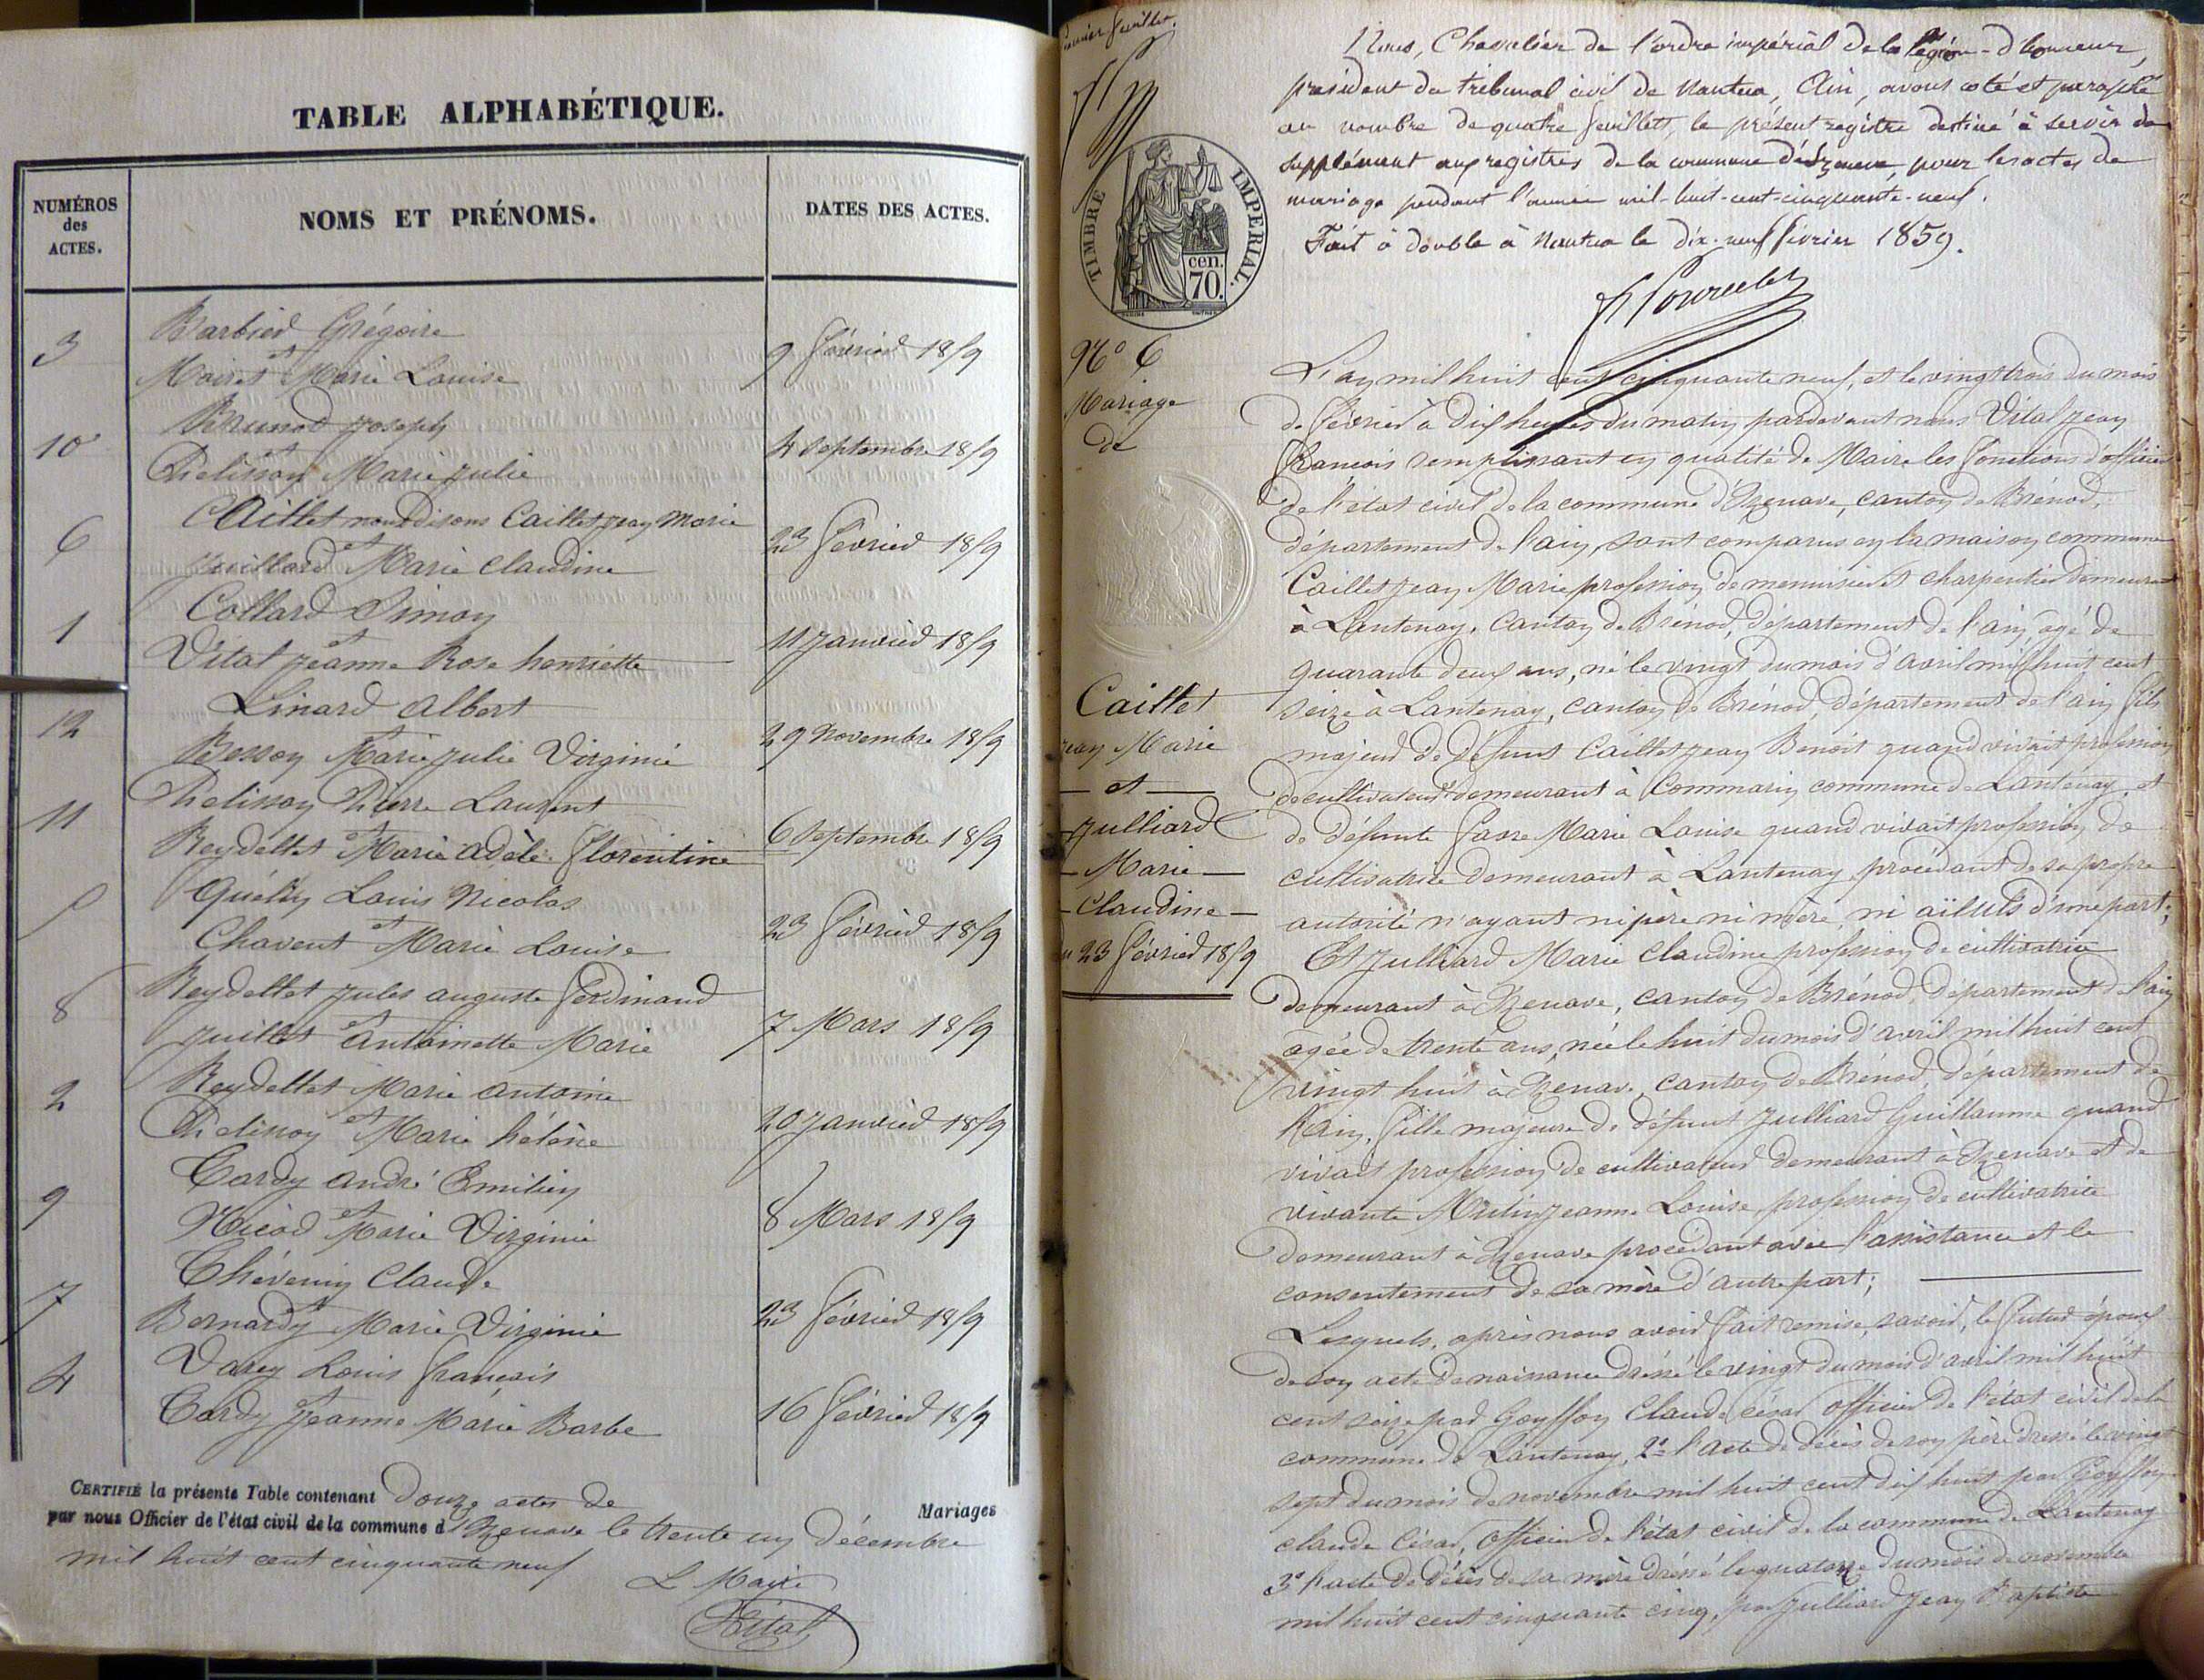 TABLE ALPHABÉTIQUE.
NUMÉROS
des
ACTES.
NOMS ET PRÉNOMS.
DATES DES ACTES.
3
Barbier Grégoire
et
Mairet Marie Louise
9 février 1859
10
Brunod Joseph
et
Pélisson Marie Julie
4 Septembre 1859
6
Caillet nous disons Caillet Jean Marie
et
Juillard Marie Claudine
23 février 1859
1
Collard Simon
et
Vital Jeanne Rose henriette
11 Janvier 1859
12
Linard Albert
et
Besson Marie Julie Virginie
29 Novembre 1859
11
Pélisson Pierre Laurent
et
Reydellet Marie adèle florentine
6 Septembre 1859
5
Quélin Louis Nicolas
et
Chavent Marie Louise
23 février 1859
8
Reydellet Jules auguste ferdinand
et
Juillet antoinette Marie
7 Mars 1859
2
Reydellet Marie antoine
et
Pélisson Marie hélène
20 Janvier 1859
9
Tardy andré Emilien
et
Nicod Marie Virginie
8 Mars 1859
7
Thévenin Claude
et
Bernardy Marie Virginie
23 février 1859
4
Varey Louis françois
et
Tardy Jeanne Marie Barbe
16 février 1859
CERTIFIÉ la présente Table contenant Douze actes de Mariages
par nous Officier de l'état civil de la commune d'Izenave le trente un décembre
mil huit cent cinquante neuf
Le Maire
Vital
premier feuillet.
Nous, Chevalier de l'ordre impérial de la légion-d'honneur,
président du tribunal civil de Nantua, Ain, avons coté et paraphé
au nombre de quatre feuillets, le présent registre destiné à servir de
supplément aux registres de la commune d'Izenave, pour les actes de
mariage pendant l'année mil-huit-cent-cinquante-neuf.
Fait à double à Nantua le dix-neuf février 1859.
TIMBRE IMPERIAL.
cen.
70.
N° 6
Mariage
de
Caillet
Jean Marie
et
Julliard
Marie
Claudine
du 23 février 1859
L'an mil huit cent cinquante neuf, et le vingt trois du mois
de février à dix heures du matin pardevant nous Vital Jean
François remplissant en qualité de Maire les fonctions d'officier
de l'état civil de la commune d'Izenave, canton de Brénod,
département de l'ain, sont comparus en la maison commune
Caillet Jean Marie profession de menuisier et charpentier demeurant
à Lantenay, Canton de Brénod, département de l'ain, agé de
quarante deux ans, né le vingt du mois d'avril mil huit cent
seize à Lantenay, canton de Brénod, département de l'ain fils
majeur de défunt Caillet Jean Benoit quand vivait profession
de cultivateur demeurant à Commarin commune de Lantenay, et
de défunte favre Marie Louise quand vivait profession de
cultivatrice demeurant à Lantenay procédant de sa propre
autorité n'ayant ni père ni mère, ni aïeuls d'une part;
Et Julliard Marie Claudine profession de cultivatrice
demeurant à Izenave, canton de Brénod, département de l'ain
agée de trente ans, née le huit du mois d'avril mil huit cent
vingt huit à Izenave, canton de Brénod, département de
l'Ain, fille majeure de défunt Julliard Guillaume quand
vivait profession de cultivateur demeurant à Izenave et de
vivante Jeanne Louise, profession de cultivatrice
demeurant à Izenave procédant avec l'assistance et le
consentement de sa mère d'autre part;
Lesquels, après nous avoir fait remise, savoir, le futur époux
de son acte de naissance dressé le vingt du mois d'avril mil huit
cent seize par Goyffon Claude César officier de l'état civil de la
commune de Lantenay, 2° l'acte de décès de son père dressé le vingt
sept du mois de novembre mil huit cent dix huit par Goyffon
claude César, officier de l'état civil de la commune de Lantenay
3° l'acte de décès de sa mère dressé le quatorze du mois de novembre
mil huit cent cinquante cinq, par Julliard Jean Baptiste